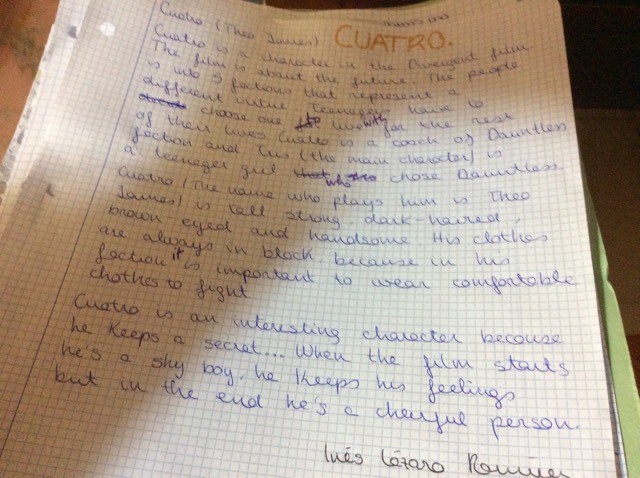 Cuatro (Theo James) CUATRO.
Cuatro is a character in the Divergent film.
The film is about the future. The people
is into 5 factions that represent a
different virtue Teenager have to
choose one to live with for the rest
of their lives Cuatro is a coach of Dauntless
faction and Tris (the main character) is
a teenager girl who chose Dauntless.
Cuatro (The name who plays him is Theo
James) is tall strong, dark-haired,
brown-eyed and handsome. His clothes
are always in black because in his
faction it is important to wear comfortable
chothes to fight
Cuatro is an interesting character because
he keeps a secret... When the film starts
he's a shy boy, he keeps his feelings
but in the end he's a cheerful person.
Inés Lázaro